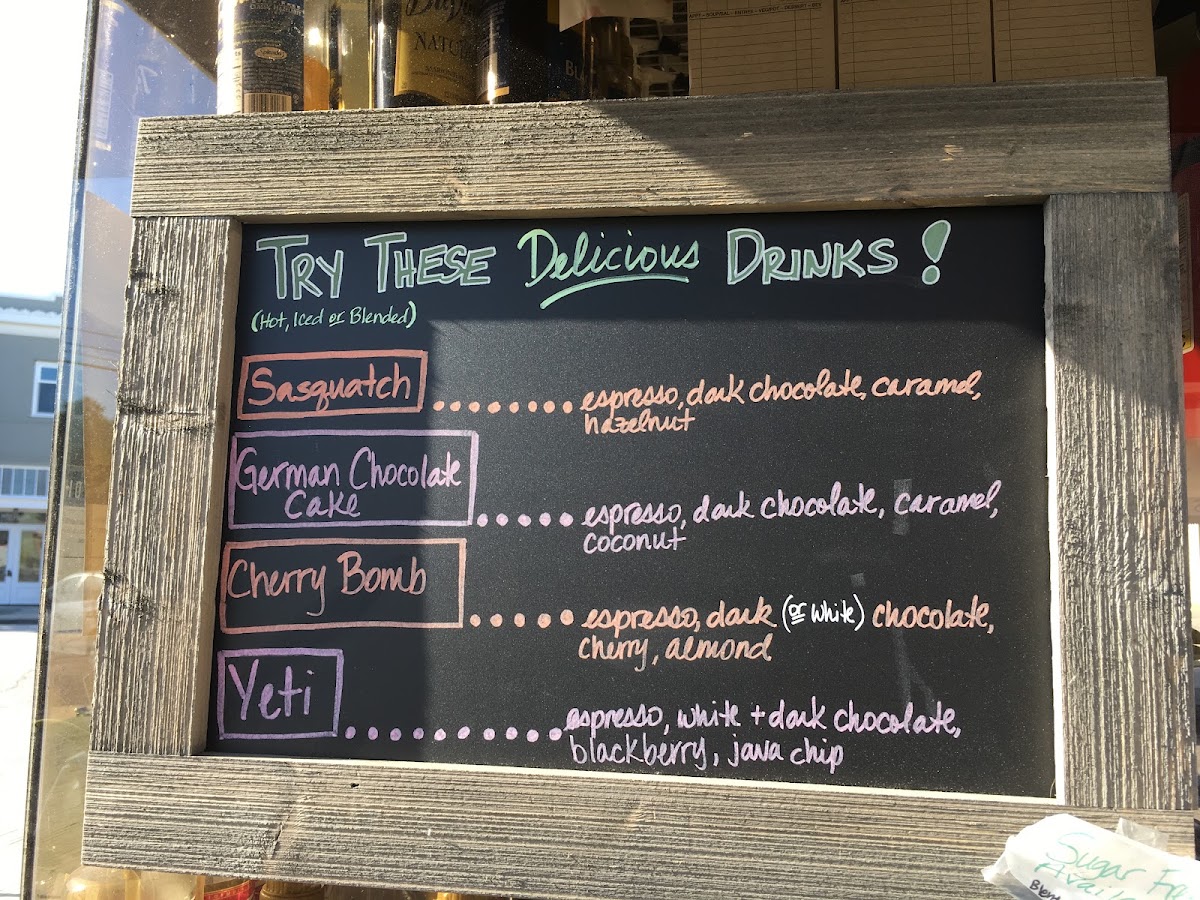 NATU
TRY THESE Delicious DRINKS!
(Hot, Iced or Blended)
Sasquatch
espresso, dark chocolate, caramel,
hazelnut
German Chocolate
Cake
espresso, dark chocolate, caramel,
coconut
Cherry Bomb
espresso, dark (or white) chocolate,
cherry, almond
Yeti
espresso, white + dark chocolate,
blackberry, java chip
Sugar Fr
Availa
Blen